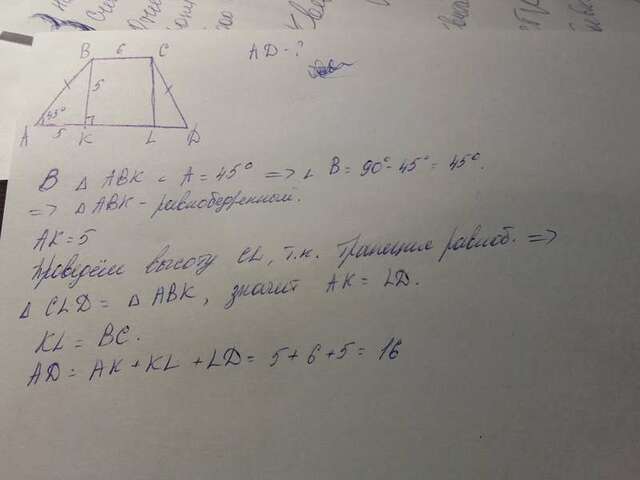 B 6 C
AD - ?
5
45°
A 5 K L D
В △ ABK ∠ A = 45° => ∠ B = 90° - 45° = 45°.
=> △ ABK - равнобедренный.
AK = 5
Проведём высоту CL, т.к. трапеция равноб. =>
△ CLD = △ ABK, значит AK = LD.
KL = BC.
AD = AK + KL + LD = 5 + 6 + 5 = 16